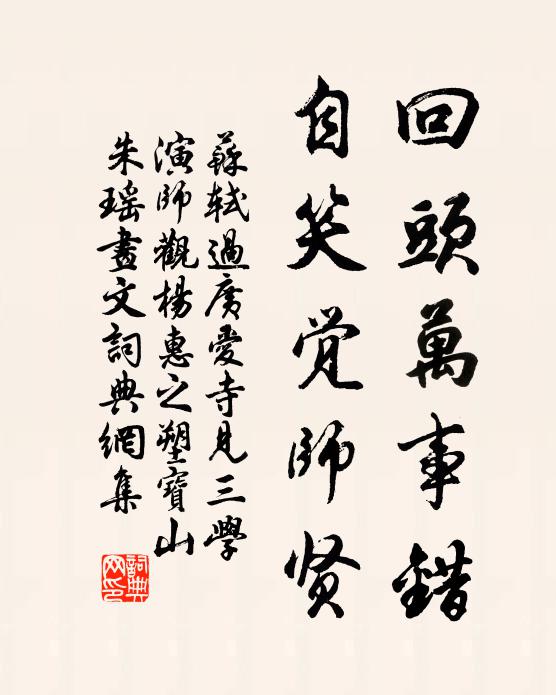 回頭萬事錯
自笑觉師贤
蘇軾過廣愛寺見三學
演師觀楊惠之塑寶山
朱瑶畫文詞典網集
詞典网印